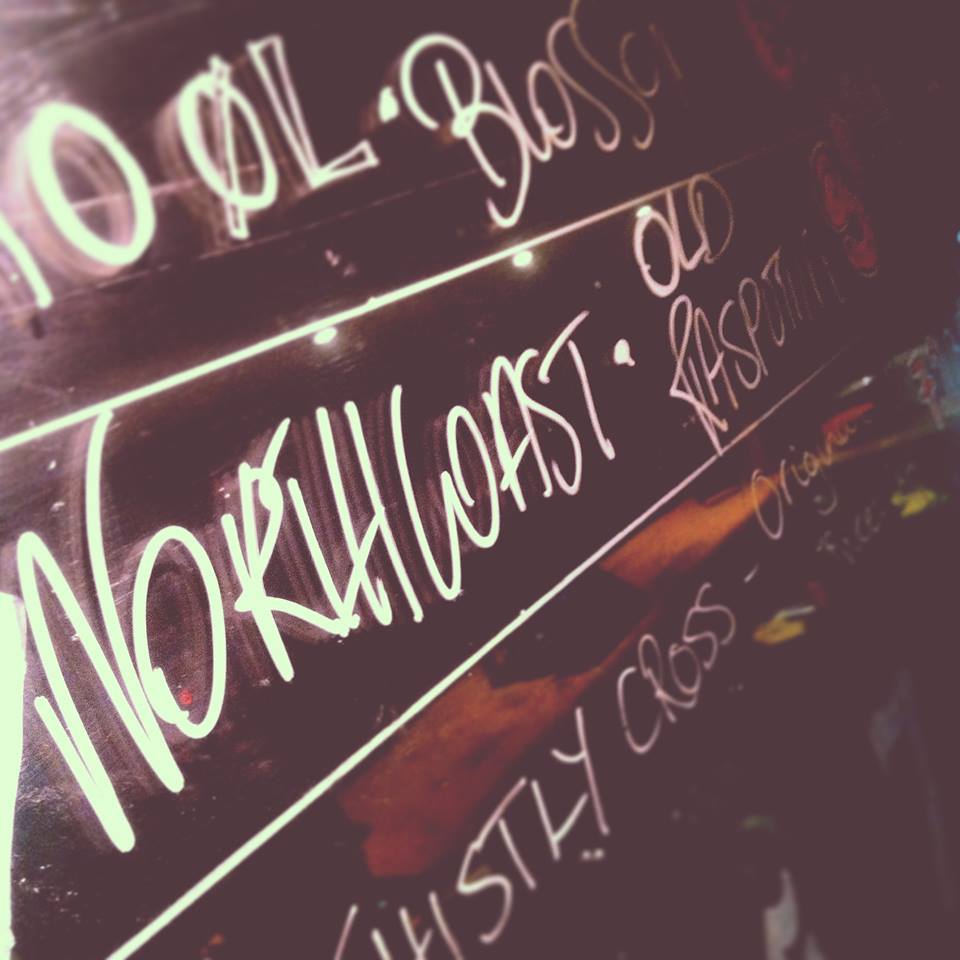 ØL · BLOSSO
NORTH COAST · OLD
RASPUTIN
THISTLY CROSS - Original